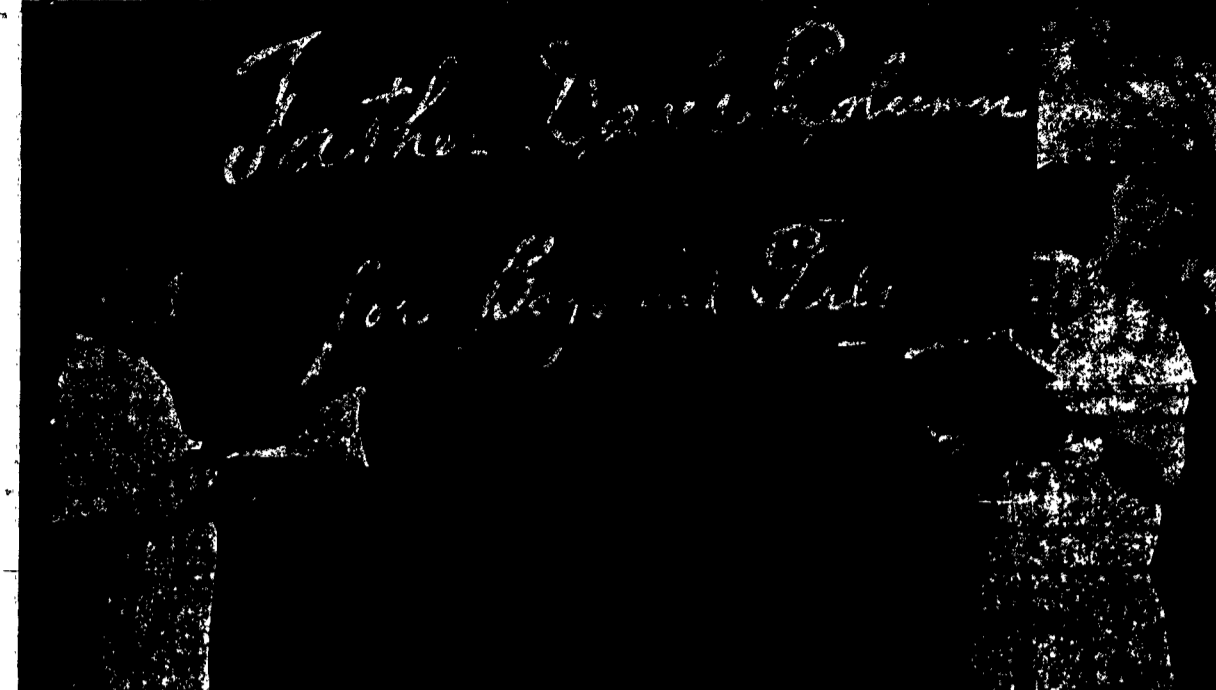 Father Dave's Column
for Boys and Girls